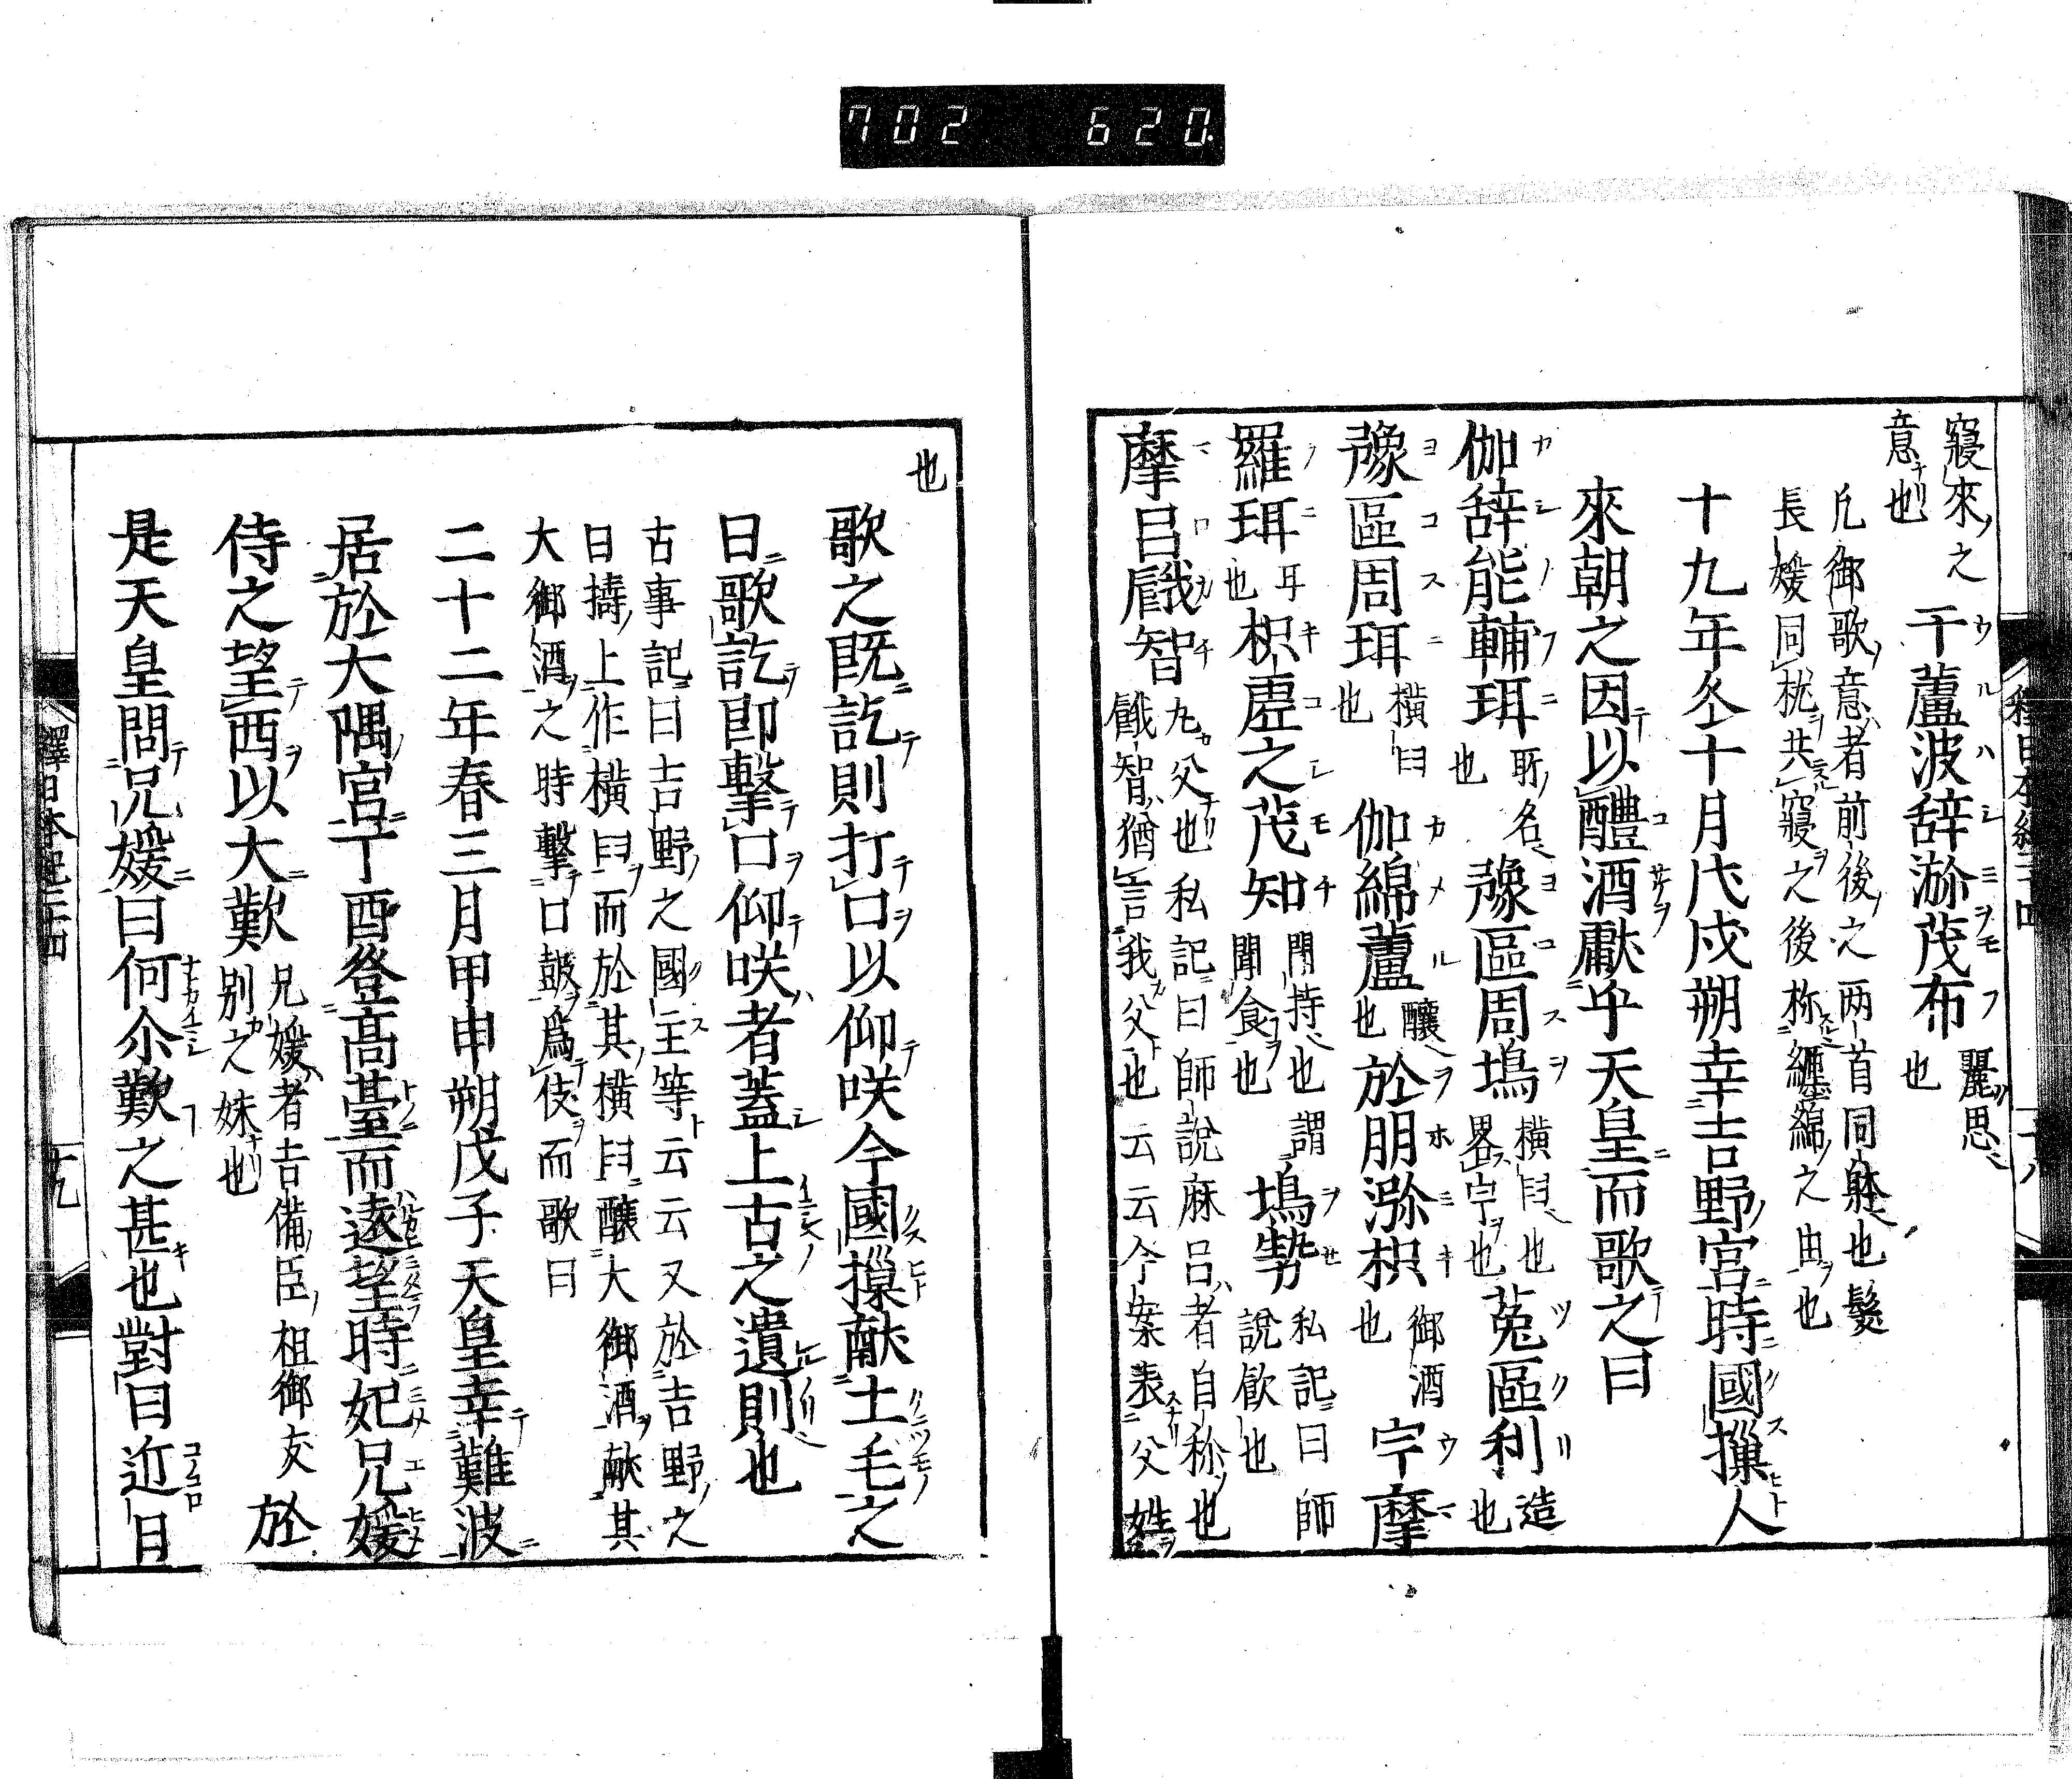 702 620
寢來之
意也
于蘆波辞瀰茂布
麗思
也
凡御歌意者前後之两首同躰也髮
長媛同枕共寢之後称纏綿之由也
十九年冬十月戊戌朔幸吉野宮時國樔人
來朝之因以醴酒獻于天皇而歌之曰
伽辞能輔珥
所名
也
豫區周塢
横臼也
畧宇也
菟區利
造
也
豫區周珥
横臼
也
伽綿蘆
釀
也
於朋瀰枳
御酒
也
宇摩
羅珥
耳
也
枳虚之茂知
聞持也謂
聞食也
塢勢
私記曰師
說飲也
摩呂餓智
丸父也私記曰師說麻呂者自称也
餓智猶言我父也云云今案表父姓
也
歌之既訖則打口以仰咲今國樔獻土毛之
日歌訖即擊口仰咲者蓋上古之遺則也
古事記曰吉野之國主等云云又於吉野之
日擣上作横臼而於其横臼釀大御酒獻其
大御酒之時擊口鼓爲伎而歌曰
二十二年春三月甲申朔戊子天皇幸難波
居於大隅宮丁酉登髙臺而遠望時妃兄媛
侍之望西以大歎
兄媛者吉備臣祖御友
別之妹也
於
是天皇問兄媛曰何尒歎之甚也對曰近日
釋日本紀二十四
十九